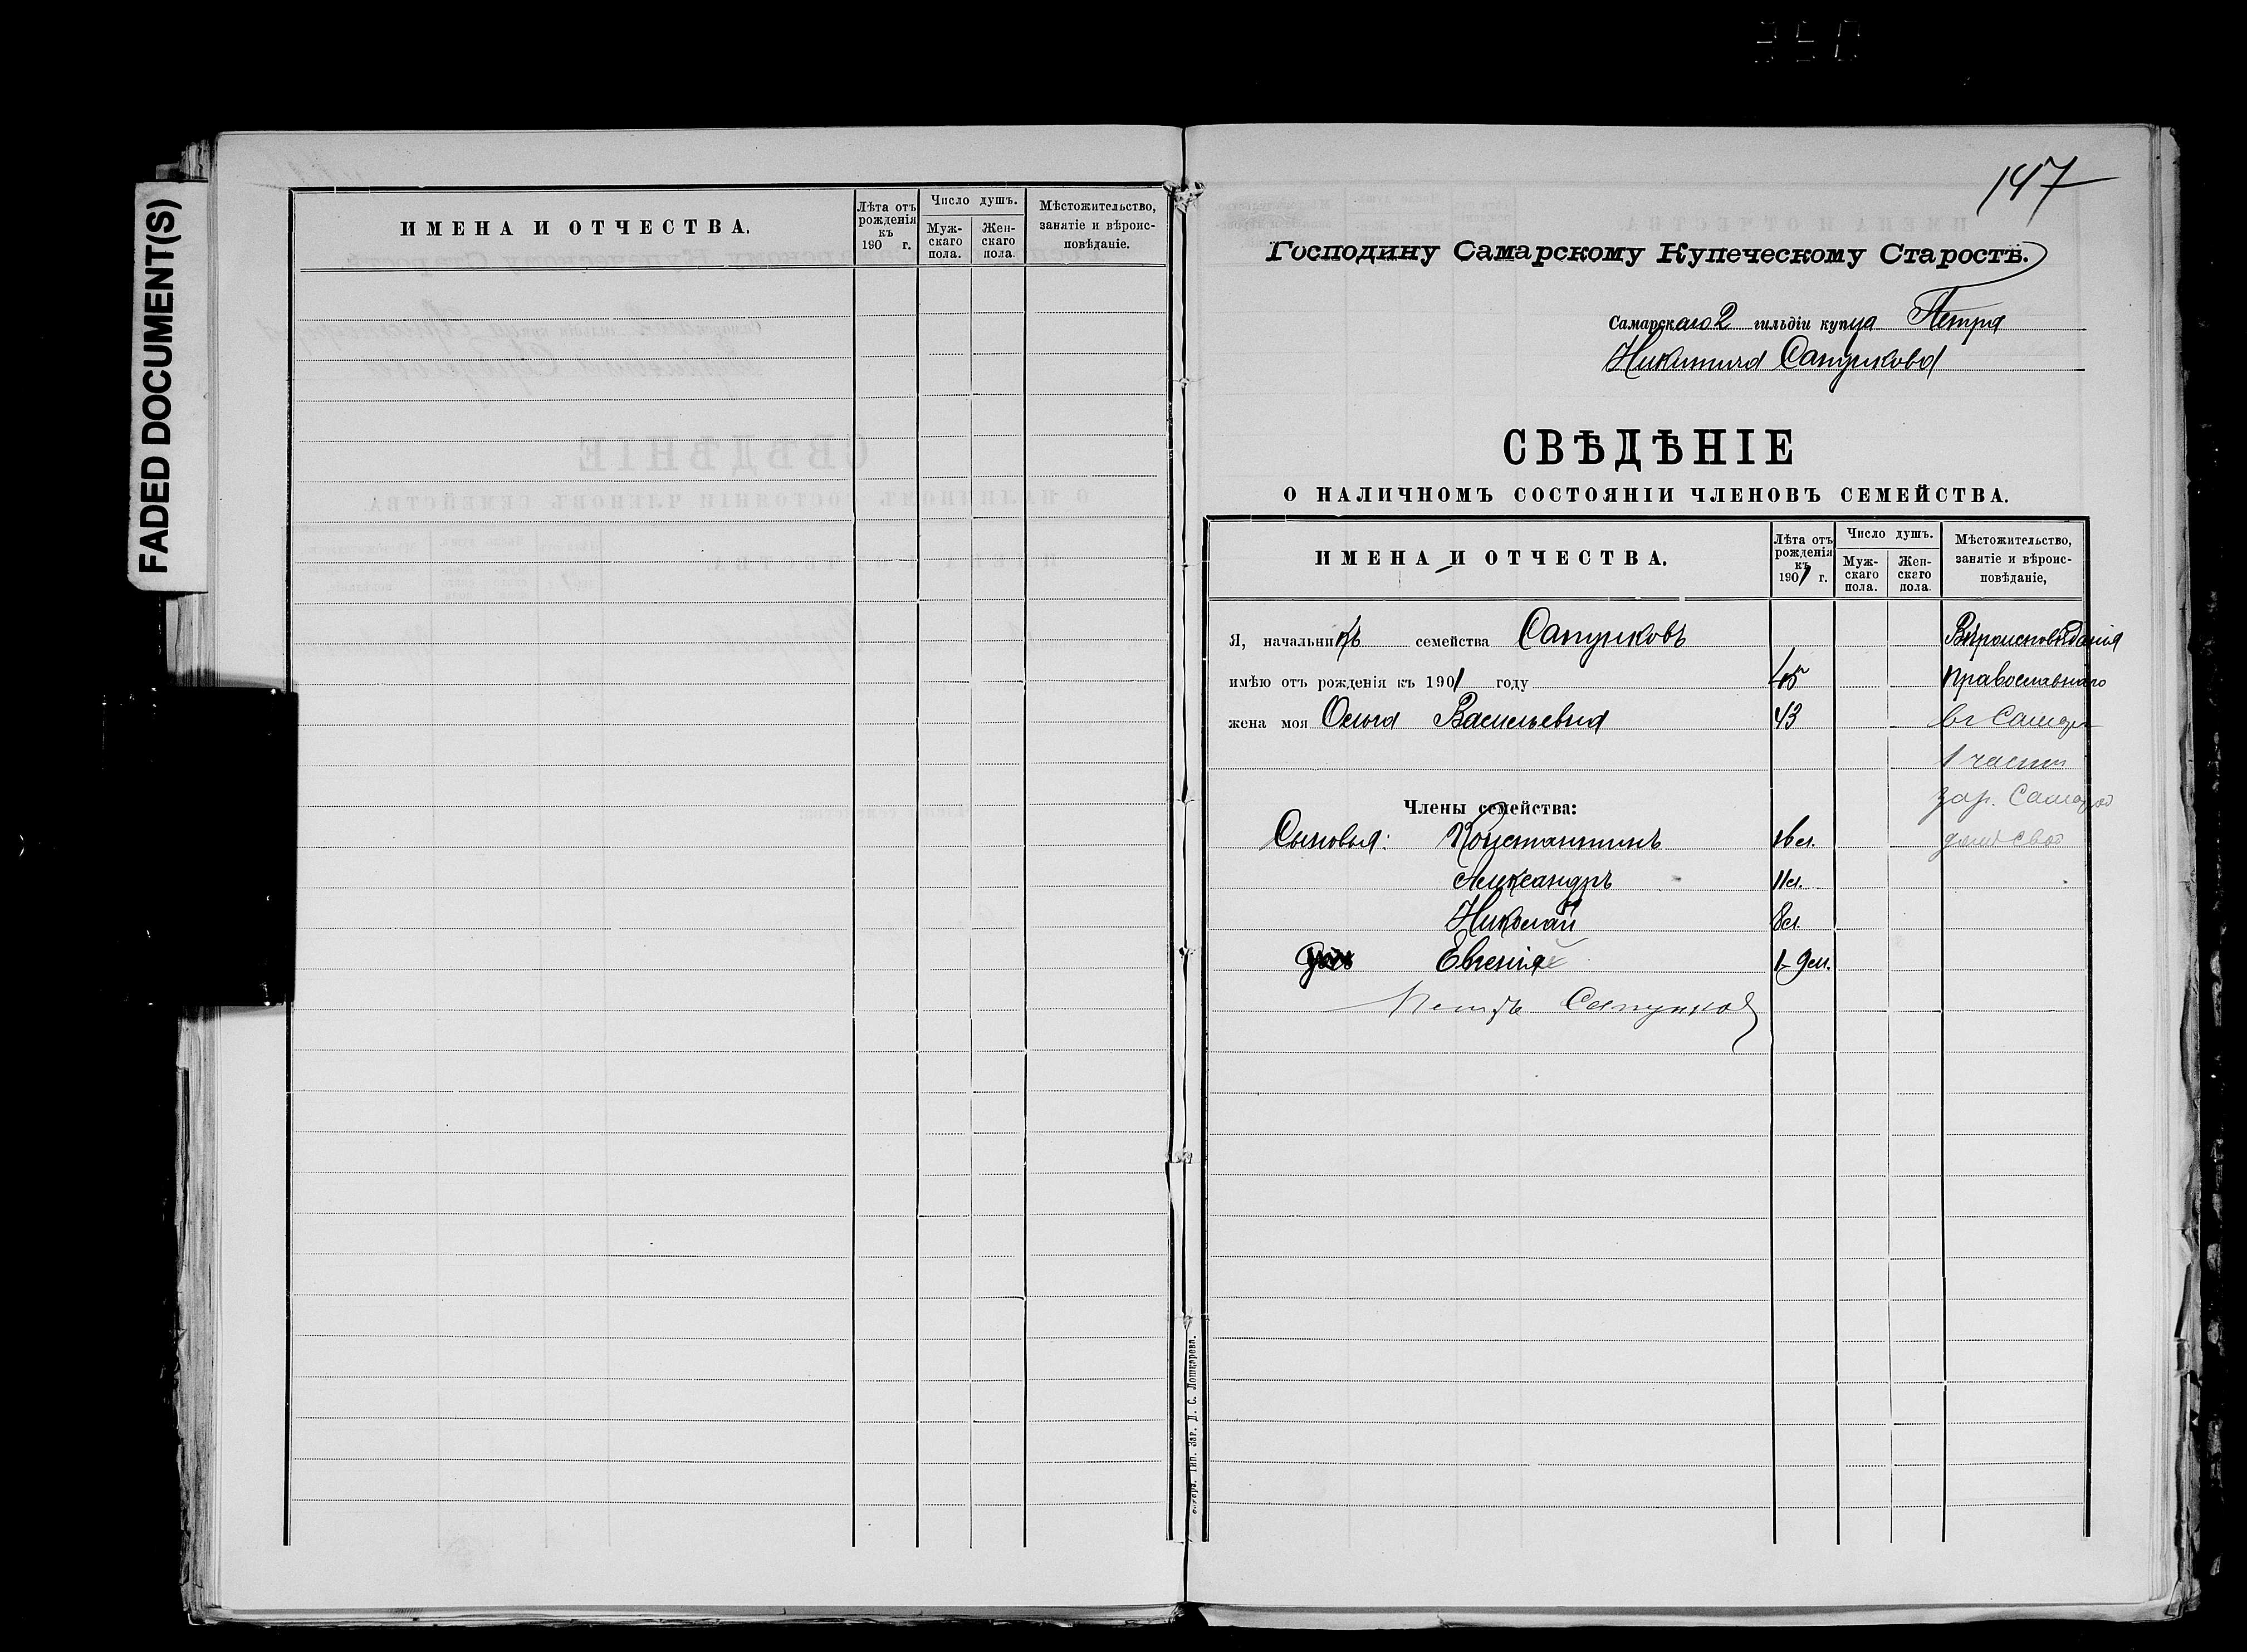 FADED DOCUMENT(S)
ИМЕНА И ОТЧЕСТВА.
Лѣта отъ рожденія къ 190 г.
Число душъ.
Мужскаго пола.
Женскаго пола.
Мѣстожительство, занятіе и вѣроисповѣданіе.
147
Господину Самарскому Купеческому Старостѣ.
Самарскаго 2 гильдіи купца Петра
Никитича Сапункова
СВѢДѢНІЕ
О НАЛИЧНОМЪ СОСТОЯНІИ ЧЛЕНОВЪ СЕМЕЙСТВА.
ИМЕНА И ОТЧЕСТВА.
Лѣта отъ рожденія къ 1901 г.
Число душъ.
Мужскаго пола.
Женскаго пола.
Мѣстожительство, занятіе и вѣроисповѣданіе,
Я, начальникъ семейства Сапунковъ Вѣроисповѣданія
имѣю отъ рожденія къ 1901 году 45 православнаго
жена моя Ольга Васильевна 43 въ Самарѣ
1 части
Члены семейства:
Сыновья: Константинъ 16 л. домъ свой
Александръ 11 л.
Николай 8 л.
Евгенія
Петръ Сапунков
Тип. Зар. П. С. Лошкарева.